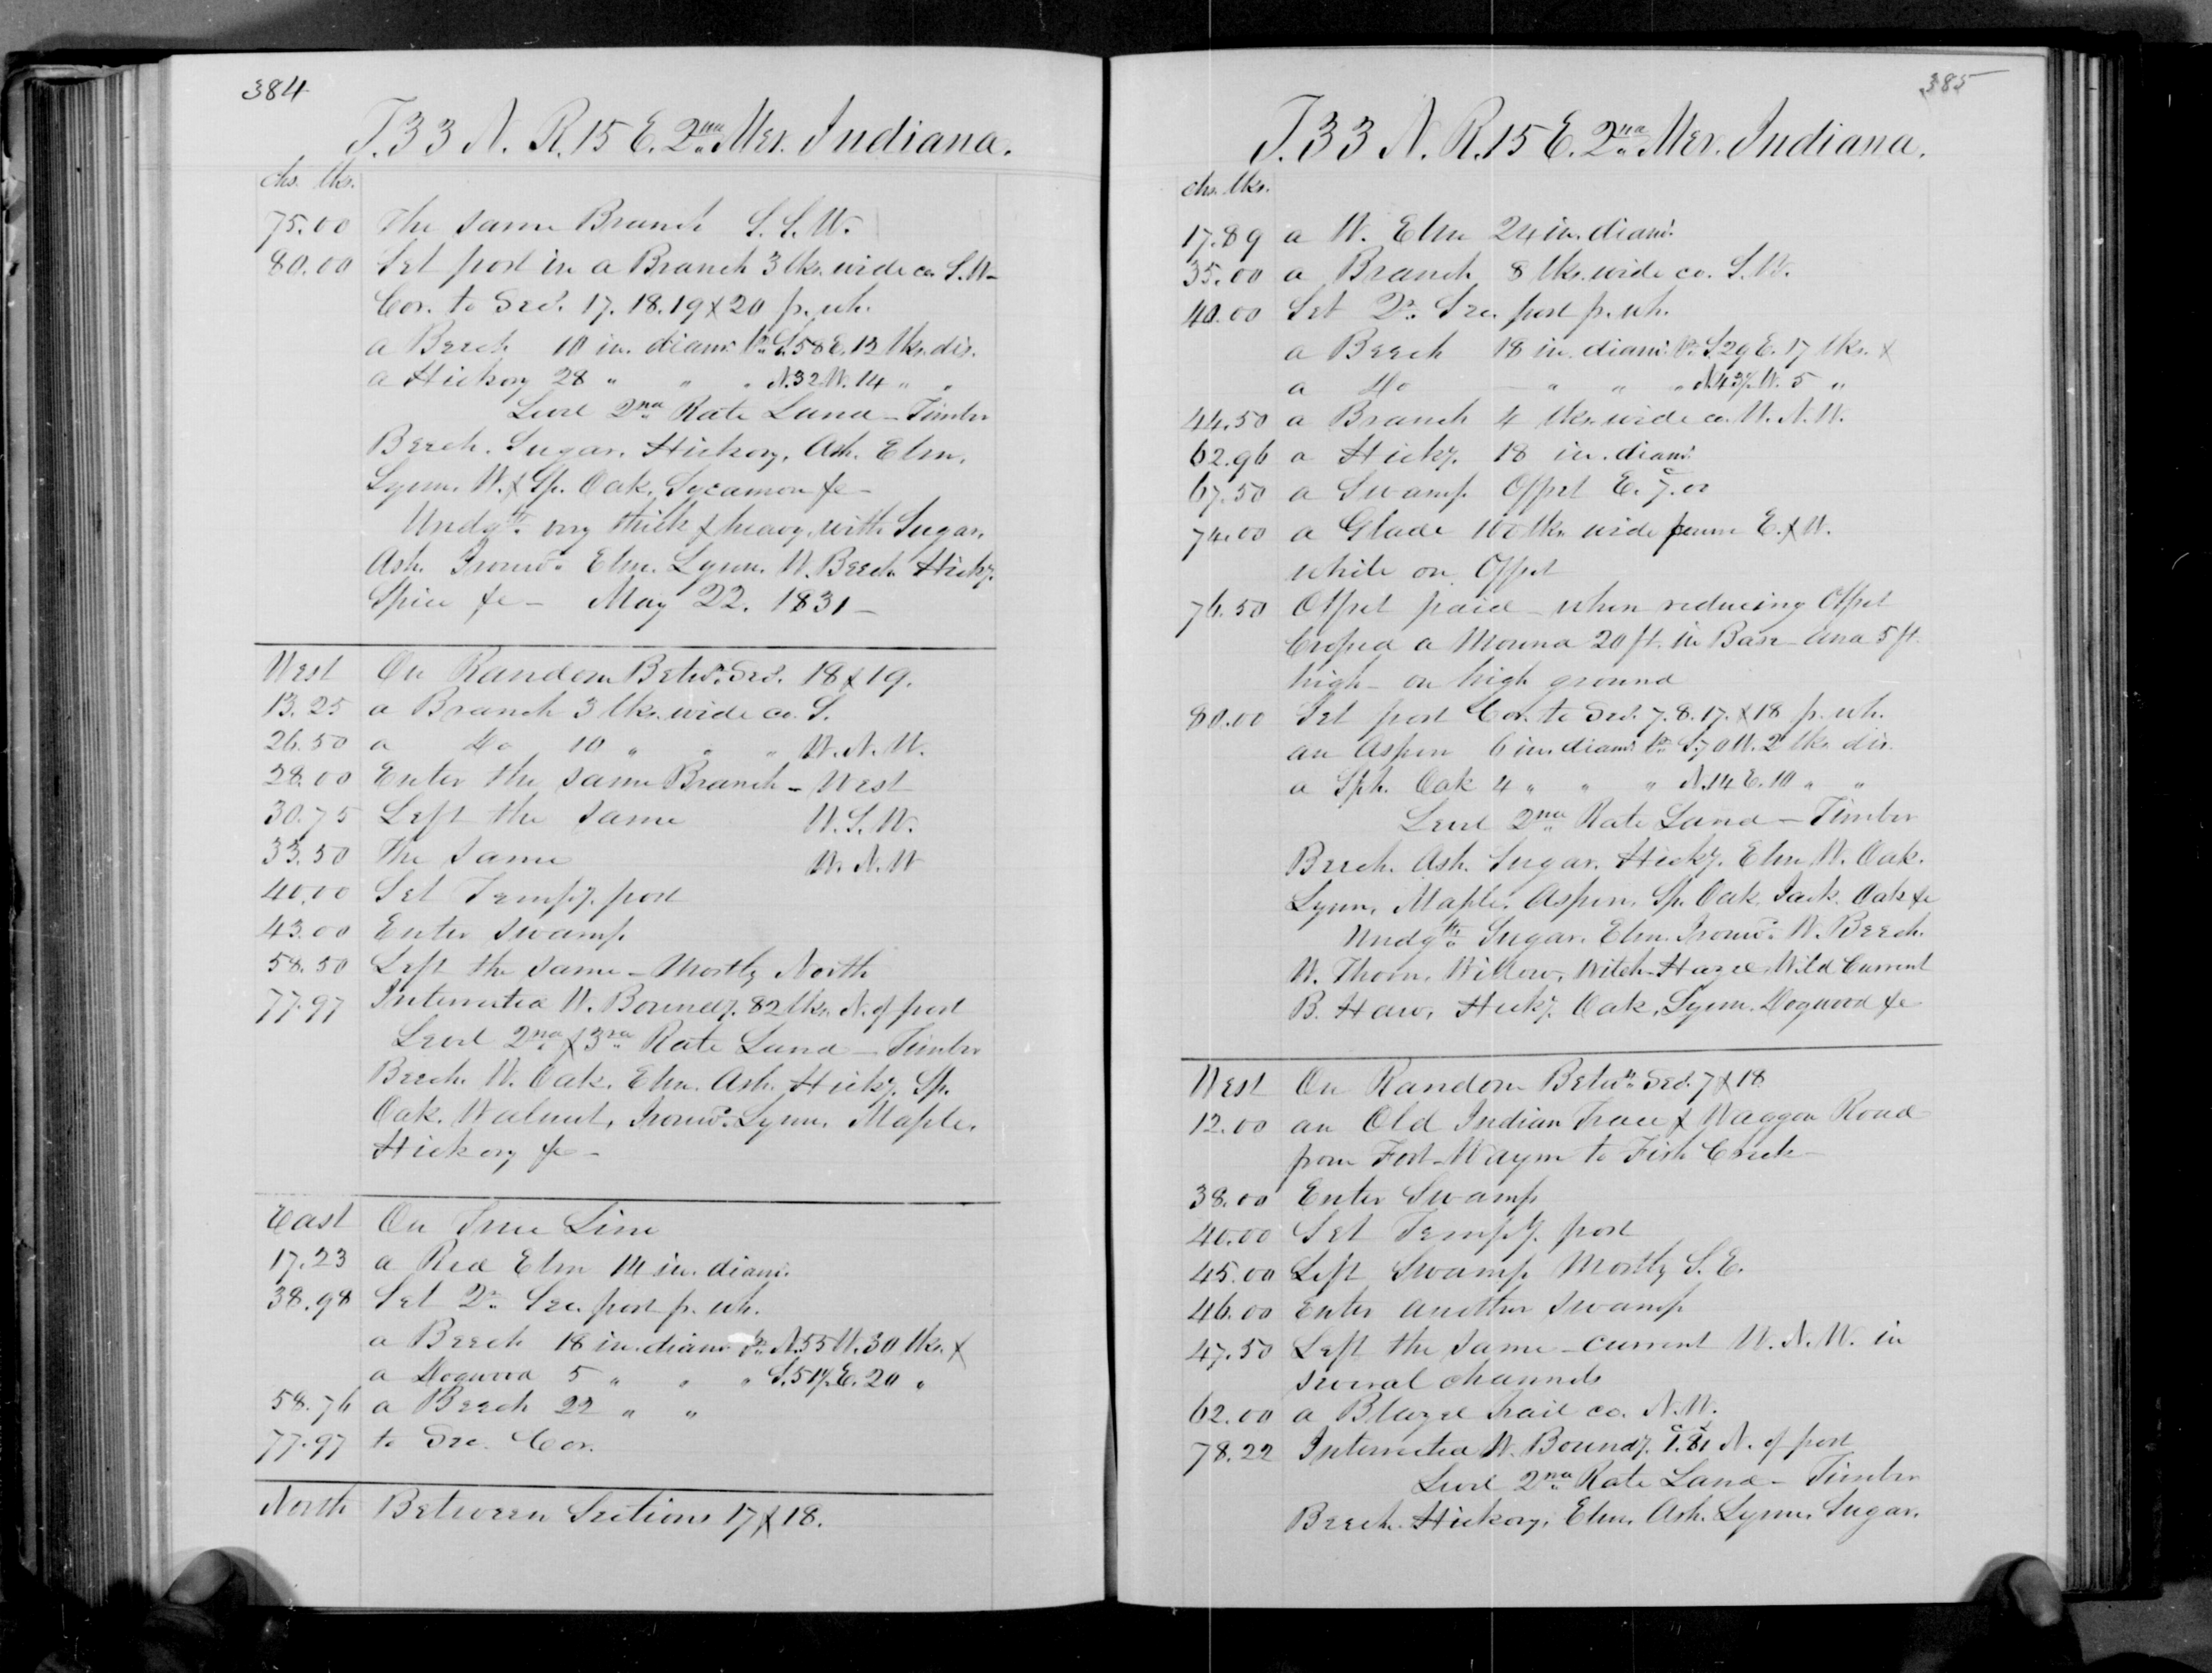 384
T. 33 N. R. 15 E. 2nd Mer. Indiana.
chs. lks.
75.00 The same Branch S. S. W.
80.00 Set post in a Branch 3 lks. wide co. S. W-
Cor. to Secs. 17. 18. 19 & 20 p. wh.
a Beech 10 in. diamr. br. S. 58 E. 12 lks. dis.
a Hickory 28 " " " N. 32 W. 14 " "
Level 2nd Rate Land - Timber
Beech. Sugar. Hickory, Ash. Elm,
Lynn. W. & Sp. Oak, Sycamore &c -
Undgth. very thick & heavy, with Sugar,
Ash. Ironwd. Elm. Lynn. W. Beech Hicky.
Spice &c - May 22. 1831 -
West On Random Betwn. Secs. 18 & 19.
13.25 a Branch 3 lks. wide co. S.
26.50 a do 10 " " " W. N. W.
28.00 Enter the same Branch - West
30.75 Left the same W. S. W.
33.50 The same W. N. W
40.00 Set Tempy. post
43.00 Enter swamp
58.50 Left the same - Mostly North
77.97 Intersected W. Boundy. 82 lks. N. of post
Level 2nd & 3rd Rate Land - Timber
Beech. W. Oak. Elm. Ash. Hicky. Sp.
Oak. Walnut, Ironwd. Lynn, Maple,
Hickory &c -
East On True Line
17.23 a Red Elm 14 in. diamr.
38.98 Set qr. Sec. post p. wh.
a Beech 18 in. diamr. br. N. 55 W. 30 lks. &
a Dogwood 5 " " " S. 51½ E. 20 "
58.76 a Beech 22 " "
77.97 to Sec. Cor.
North Between Sections 17 & 18.
385
T. 33 N. R. 15 E. 2nd Mer. Indiana.
chs. lks.
17.89 a W. Elm 24 in. diamr.
35.00 a Branch 8 lks. wide co. S. W.
40.00 Set qr. Sec. post p. wh.
a Beech 18 in. diamr. br. S. 29 E. 17 lks. &
a do - " " " W. 5 "
44.50 a Branch 4 lks. wide co. W. N. W.
62.96 a Hicky. 18 in. diamr.
67.50 a Swamp Offset E. 7.00
74.00 a Glade 100 lks. wide E. & W.
while on Offset
76.50 Offset paid - when reducing Offset
Crossed a Mound 20 ft. in Base and 5 ft.
high - on high ground
80.00 Set post Cor. to Secs. 7. 8. 17. & 18 p. wh.
an Aspen 6 in. diamr. br. S. 70 W. 2 lks. dis.
a Sph. Oak 4 " " " N. 14 E. 10 " "
Level 2nd Rate Land - Timber
Beech. Ash. Sugar. Hicky. Elm W. Oak.
Lynn, Maple, Aspen, Sp. Oak Jack. Oak &c
Undgth. Sugar. Elm. Ironwd. W. Beech.
W. Thorn, Willow, Witch-Hazel, Wild Currant
B. Haw, Hicky. Oak, Lynn. Dogwood &c
West On Random Betwn. Secs. 7 & 18
12.00 an Old Indian Trace & Waggon Road
from Fort-Wayne to Fish Creek -
38.00 Enter Swamp
40.00 Set Tempy. post
45.00 Left Swamp Mostly S. E.
46.00 Enter another swamp
47.50 Left the same - current W. N. W. in
several channels
62.00 a Blazed trail co. N. W.
78.22 Intersected W. Boundy. 1.81 N. of post
Level 2nd Rate Land - Timber
Beech. Hickory, Elm, Ash. Lynn, Sugar.